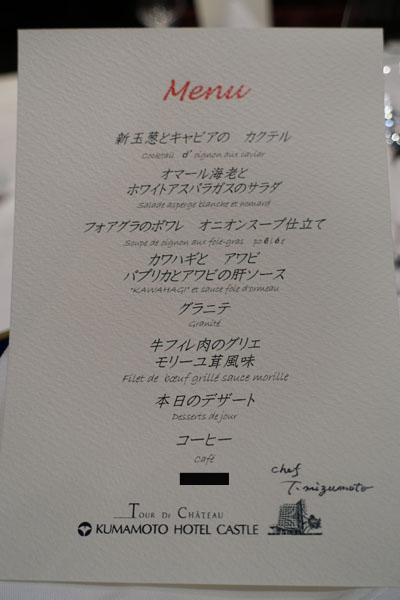 Menu
新玉葱とキャビアの カクテル
Cocktail d'oignon aux caviar
オマール海老と
ホワイトアスパラガスのサラダ
Salade asperge blanche et homard
フォアグラのポワレ オニオンスープ仕立て
Soupe de oignon aux foie-gras poêlés
カワハギと アワビ
パプリカとアワビの肝ソース
"KAWAHAGI" et sauce foie d'ormeau
グラニテ
Granité
牛フィレ肉のグリエ
モリーユ茸風味
Filet de bœuf grillé sauce morille
本日のデザート
Desserts de jour
コーヒー
Café
chef
T. mizumoto
TOUR DE CHÂTEAU
KUMAMOTO HOTEL CASTLE